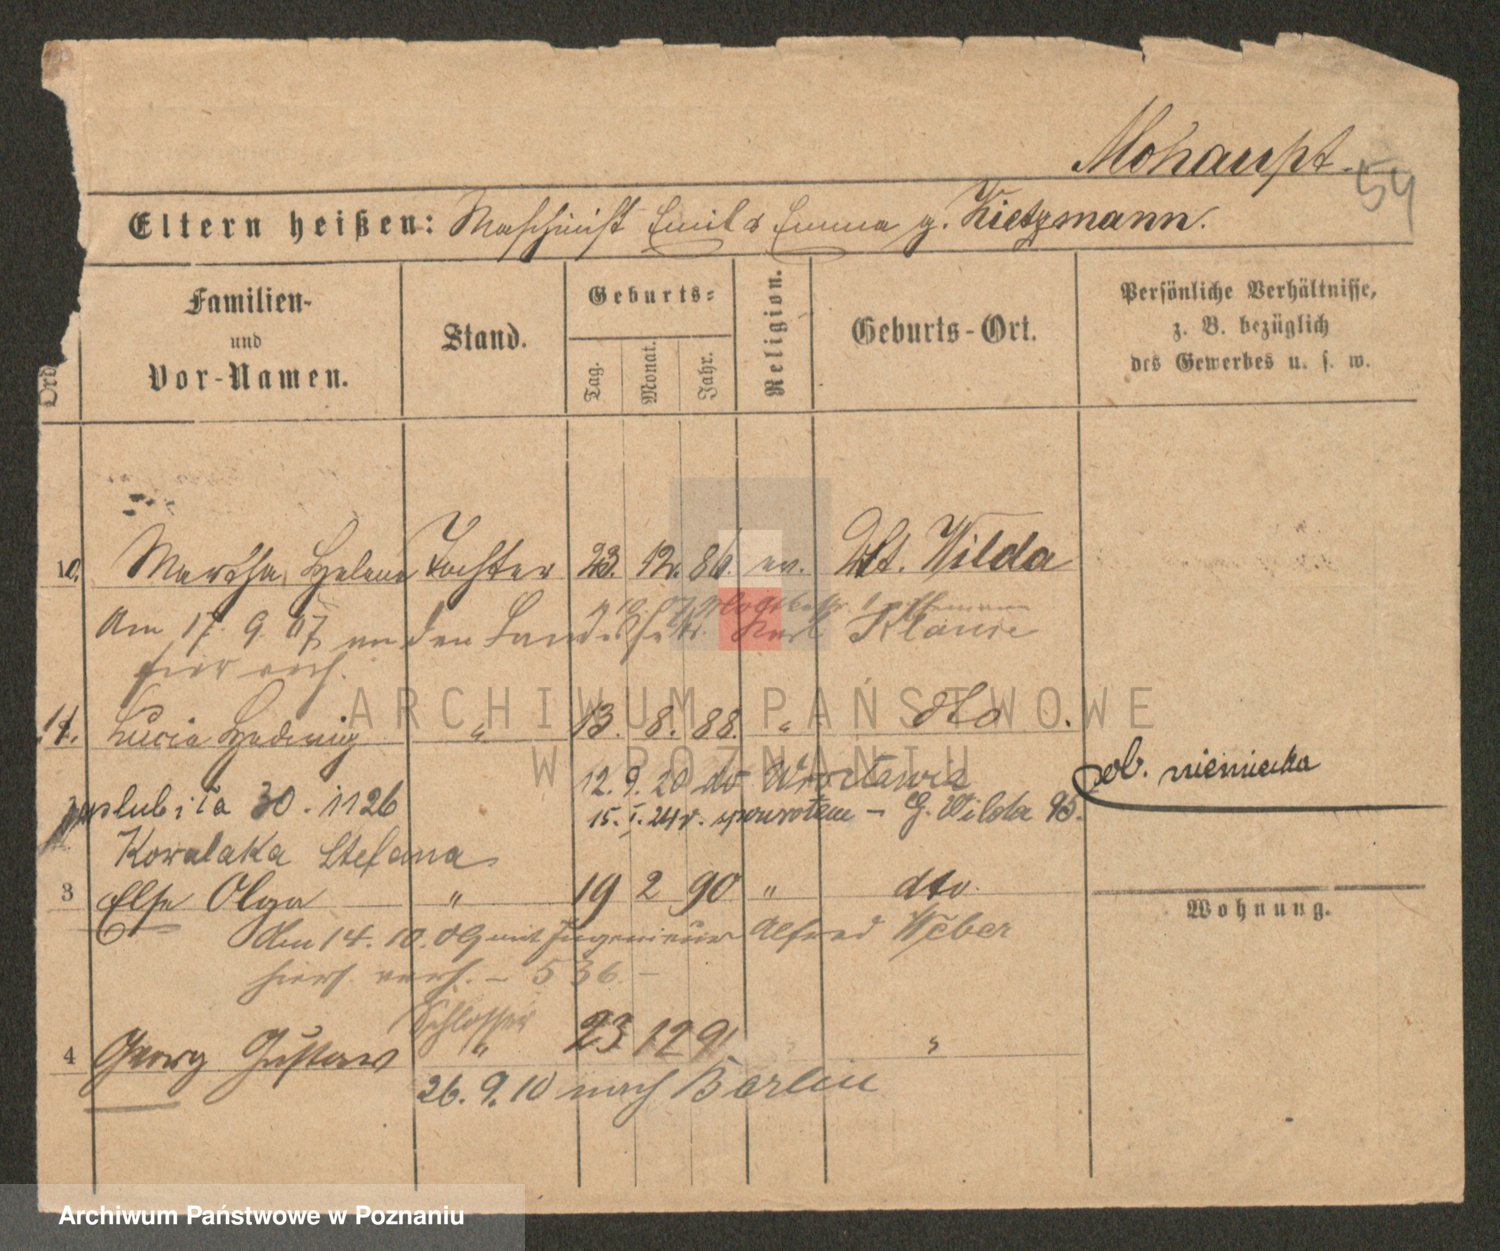 Mohaupt.
54
Eltern heißen: Maschinist Emil & Emma g. Kietzmann.
Ord
Familien-
und
Vor-Namen.
Stand.
Geburts-
Tag.
Monat.
Jahr.
Religion.
Geburts-Ort.
Persönliche Verhältnisse,
z. B. bezüglich
des Gewerbes u. s. w.
10. Martha Helene Tochter 23. 12. 86. ev. St. Wilda
Am 17. 9. 07 an den Karl
hier verh.
11. Lucia Hedwig " 13. 8. 88. " dto.
12. 9. 20 do Wrocławia
ob. niemiecka
poślubiła 30. 11 26
15. I. 24 r. spowrotem – G. Wilda 95.
Kowalaka Stefana
3 Else Olga " 19 2 90 " dto.
Wohnung.
Am 14. 10. 09 mit Ingenieur Alfred Weber
hiers. verh. – 536 –
Schlosser
4 Georg Gustav " 23 12 91 "
26. 9. 10 nach Berlin
ARCHIWUM PAŃSTWOWE
W POZNANIU
Archiwum Państwowe w Poznaniu